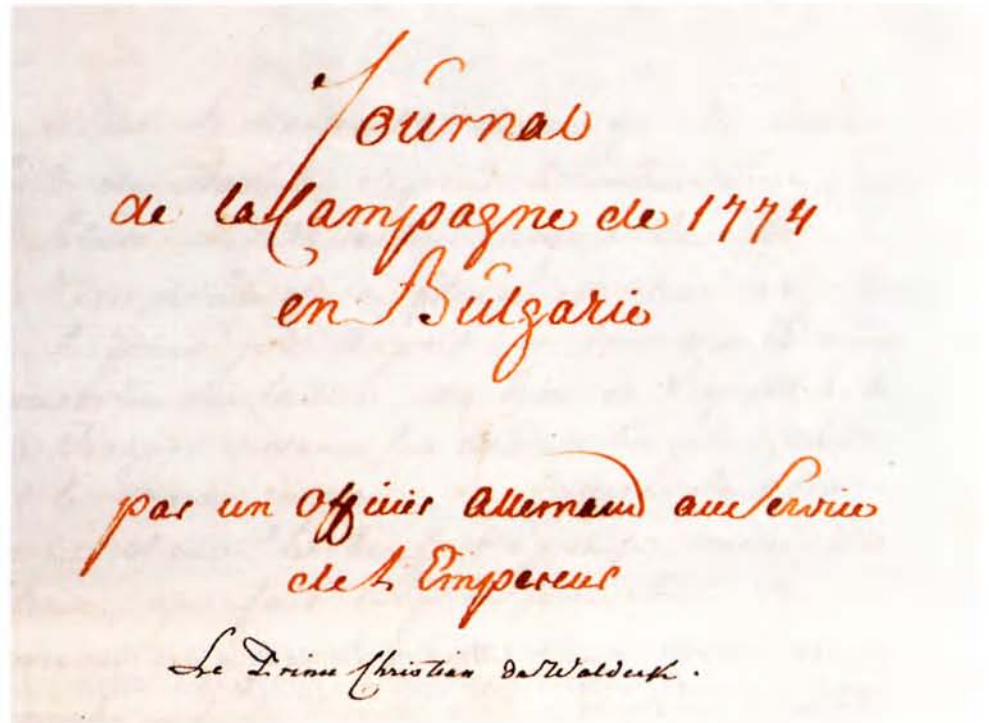 Journal
de la Campagne de 1774
en Bulgarie
par un Officier Allemand au Service
de L'Empereur
Le Prince Christian de Waldeck.